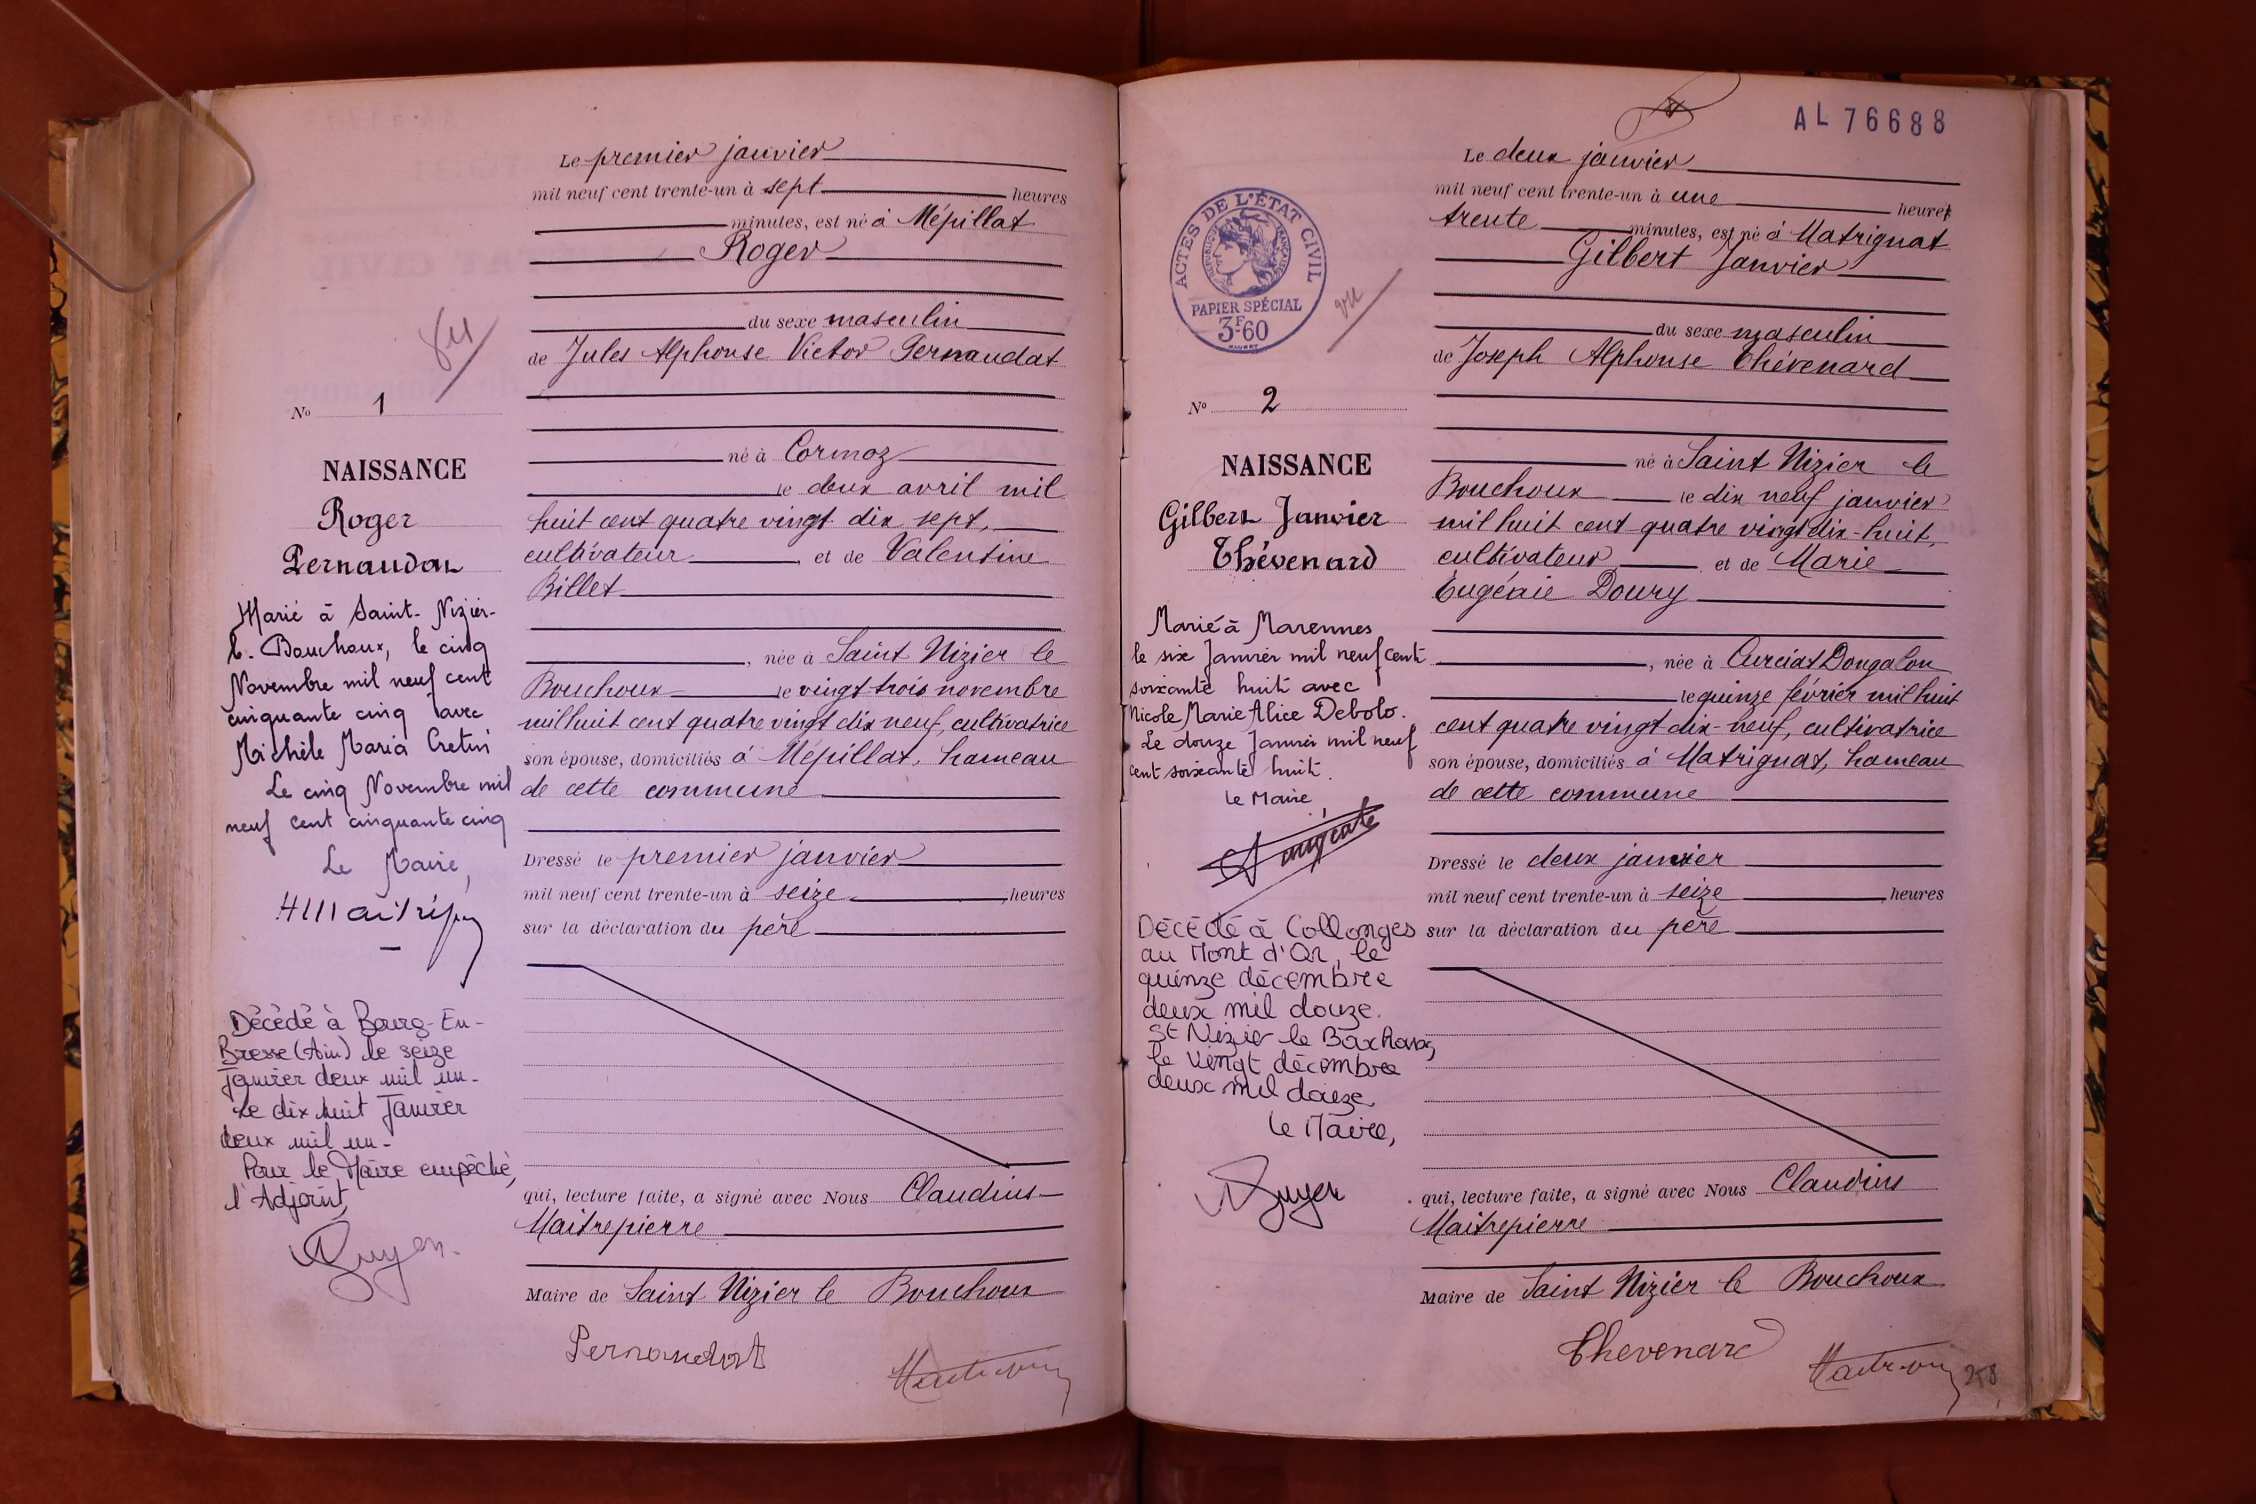 Le premier janvier
mil neuf cent trente-un à sept heures
minutes, est né à Mépillat
Roger
du sexe masculin
de Jules Alphonse Victor Pernaudat
né à Cormoz
le deux avril mil
huit cent quatre vingt dix sept,
cultivateur, et de Valentine
Billet
, née à Saint Nizier le
Bouchoux le vingt-trois novembre
mil huit cent quatre vingt dix neuf, cultivatrice
son épouse, domiciliés à Mépillat, hameau
de cette commune
Dressé le premier janvier
mil neuf cent trente-un à seize, heures
sur la déclaration du père
qui, lecture faite, a signé avec Nous Claudius
Maitrepierre
Maire de Saint Nizier le Bouchoux
Pernaudat
vu
No 1
NAISSANCE
Roger
Pernaudat
Marié à Saint-Nizier-
le-Bouchoux, le cinq
Novembre mil neuf cent
cinquante cinq avec
Michèle Maria Cretin
Le cinq Novembre mil
neuf cent cinquante cinq
Le Maire,
Décédé à Bourg-En-
Bresse (Ain) le seize
Janvier deux mil un-
Le dix huit Janvier
deux mil un-
Pour le Maire empêché,
l'Adjoint,
AL 76688
Le deux janvier
mil neuf cent trente-un à une heure
trente minutes, est né à Matrignat
Gilbert Janvier
du sexe masculin
de Joseph Alphonse Thévenard
né à Saint Nizier le
Bouchoux le dix neuf janvier
mil huit cent quatre vingt dix-huit,
cultivateur, et de Marie
Eugénie Doury
, née à Curciat Dongalon
le quinze février mil huit
cent quatre vingt dix-neuf, cultivatrice
son épouse, domiciliés à Matrignat, hameau
de cette commune
Dressé le deux janvier
mil neuf cent trente-un à seize, heures
sur la déclaration du père
qui, lecture faite, a signé avec Nous Claudius
Maitrepierre
Maire de Saint Nizier le Bouchoux
Thevenard
258
ACTES DE L'ÉTAT CIVIL
RÉPUBLIQUE FRANÇAISE
PAPIER SPÉCIAL
3F60
vu
No 2
NAISSANCE
Gilbert Janvier
Thévenard
Marié à Marennes
le six Janvier mil neuf cent
soixante huit avec
Nicole Marie Alice Debolo.
Le douze Janvier mil neuf
cent soixante huit.
Le Maire,
Décédé à Collonges
au Mont d'Or, le
quinze décembre
deux mil douze.
St Nizier le Bouchoux,
le vingt décembre
deux mil douze,
Le Maire,